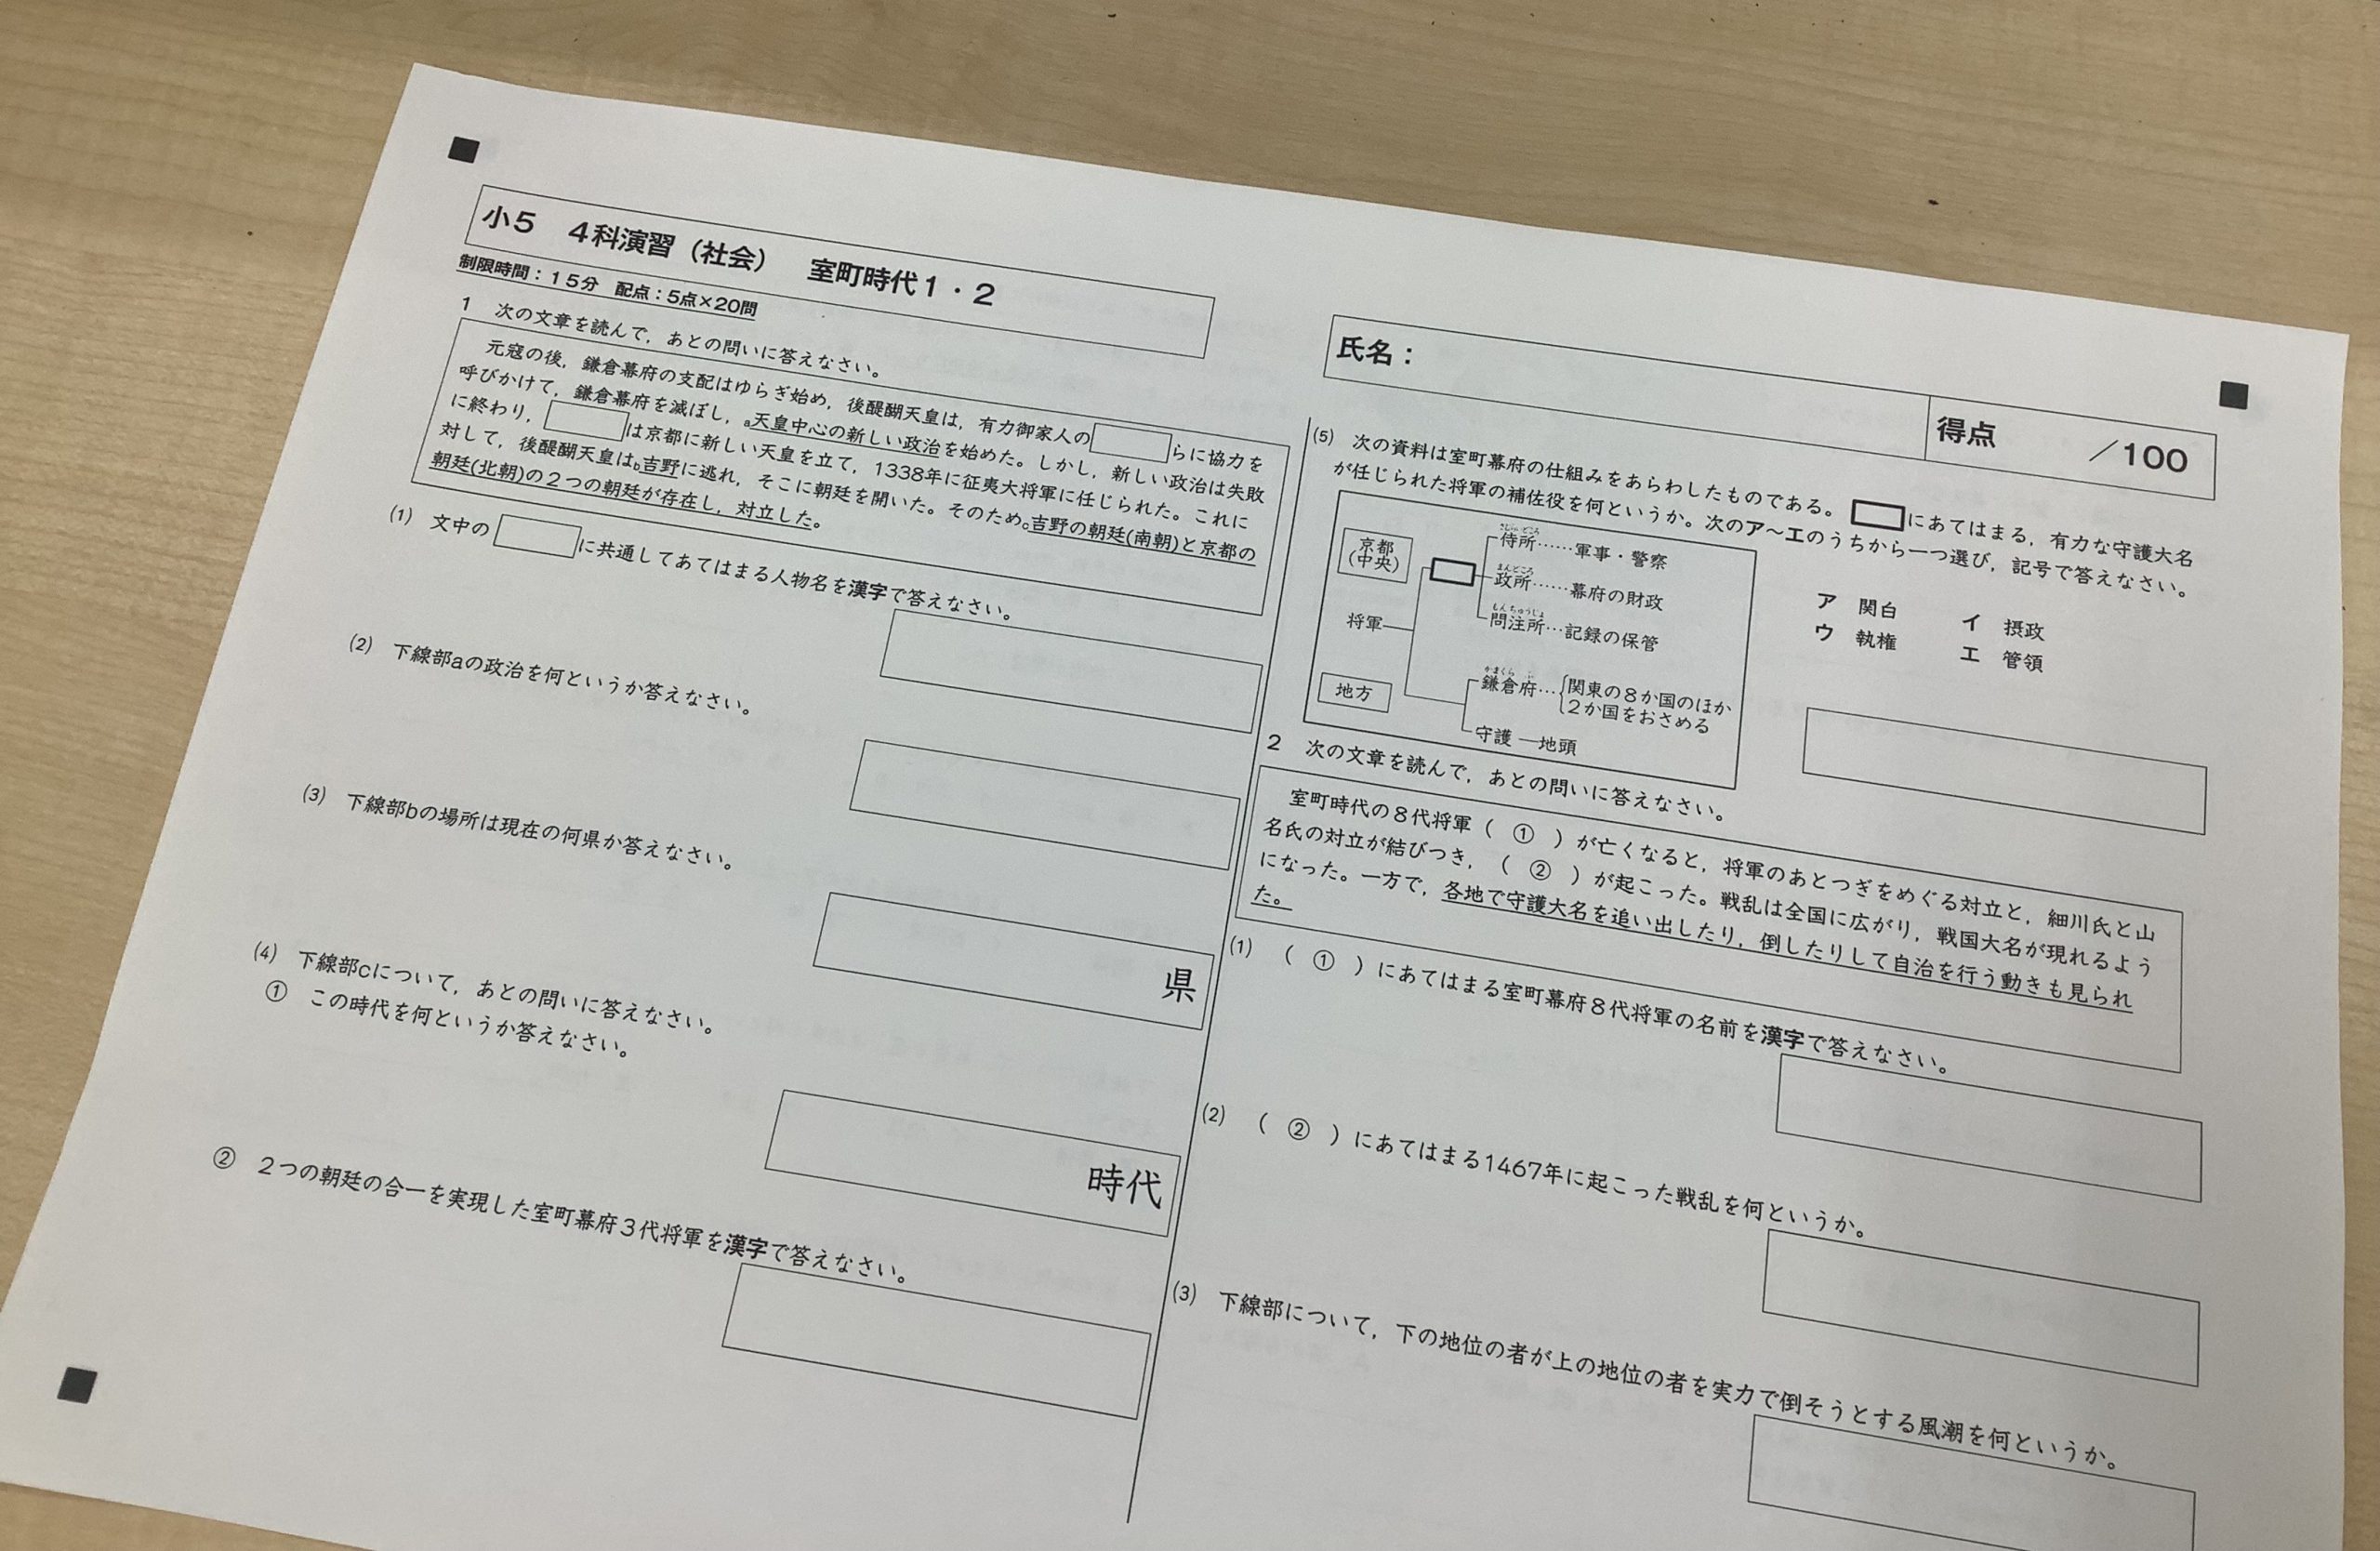 小5　4科演習（社会）　室町時代1・2
制限時間：15分　配点：5点×20問
氏名：
得点　／100
1　次の文章を読んで，あとの問いに答えなさい。
元寇の後，鎌倉幕府の支配はゆらぎ始め，後醍醐天皇は，有力御家人の　らに協力を
呼びかけて，鎌倉幕府を滅ぼし，a天皇中心の新しい政治を始めた。しかし，新しい政治は失敗
に終わり，　は京都に新しい天皇を立て，1338年に征夷大将軍に任じられた。これに
対して，後醍醐天皇はb吉野に逃れ，そこに朝廷を開いた。そのためc吉野の朝廷(南朝)と京都の
朝廷(北朝)の2つの朝廷が存在し，対立した。
(1)　文中の　に共通してあてはまる人物名を漢字で答えなさい。
(2)　下線部aの政治を何というか答えなさい。
(3)　下線部bの場所は現在の何県か答えなさい。
県
(4)　下線部cについて，あとの問いに答えなさい。
①　この時代を何というか答えなさい。
時代
②　2つの朝廷の合一を実現した室町幕府3代将軍を漢字で答えなさい。
(5)　次の資料は室町幕府の仕組みをあらわしたものである。　にあてはまる，有力な守護大名
が任じられた将軍の補佐役を何というか。次のア～エのうちから一つ選び，記号で答えなさい。
京都
(中央)
将軍
地方
さむらいどころ
侍所……軍事・警察
まんどころ
政所……幕府の財政
もんちゅうじょ
問注所…記録の保管
かまくらふ
鎌倉府…関東の8か国のほか
2か国をおさめる
守護―地頭
ア　関白　イ　摂政
ウ　執権　エ　管領
2　次の文章を読んで，あとの問いに答えなさい。
室町時代の8代将軍（　①　）が亡くなると，将軍のあとつぎをめぐる対立と，細川氏と山
名氏の対立が結びつき，（　②　）が起こった。戦乱は全国に広がり，戦国大名が現れるよう
になった。一方で，各地で守護大名を追い出したり，倒したりして自治を行う動きも見られ
た。
(1)　（　①　）にあてはまる室町幕府8代将軍の名前を漢字で答えなさい。
(2)　（　②　）にあてはまる1467年に起こった戦乱を何というか。
(3)　下線部について，下の地位の者が上の地位の者を実力で倒そうとする風潮を何というか。